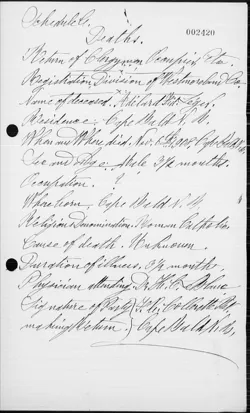 Schedule C.
002420
Deaths.
Return of Clergyman Occupier Etc.
Registration Division of Westmorland Co.
Name of deceased.
Residence. Cape Bald N. B.
When and Where died. Nov. 1908, Cape Bald
Sex and Age. Male 3½ months.
Occupation. ?
Where born. Cape Bald N. B.
Religious Denomination. Roman Catholic
Cause of death. Unknown.
Duration of illness. 3½ months.
Physician attending. Dr.
Signature of Party
making Return. } Cape Bald N. B.